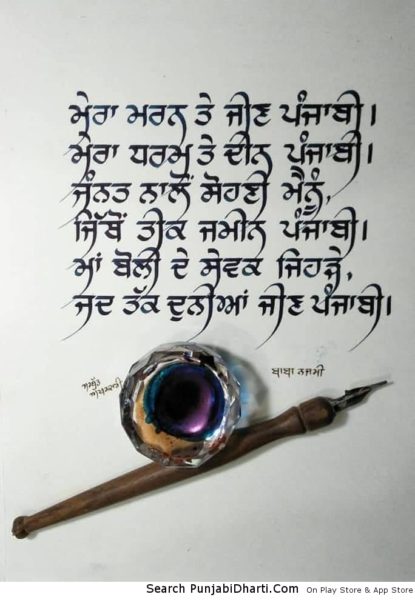 ਮੇਰਾ ਮਰਨ ਤੇ ਜੀਣ ਪੰਜਾਬੀ।
ਮੇਰਾ ਧਰਮ ਤੇ ਦੀਨ ਪੰਜਾਬੀ।
ਜੰਨਤ ਨਾਲੋਂ ਸੋਹਣੀ ਮੈਨੂੰ,
ਜਿੱਥੋਂ ਤੀਕ ਜਮੀਨ ਪੰਜਾਬੀ।
ਮਾਂ ਬੋਲੀ ਦੇ ਸੇਵਕ ਜਿਹੜੇ,
ਜਦ ਤੱਕ ਦੁਨੀਆਂ ਜੀਣ ਪੰਜਾਬੀ।
ਬਾਬਾ ਨਜਮੀ
Search PunjabiDharti.Com On Play Store & App Store